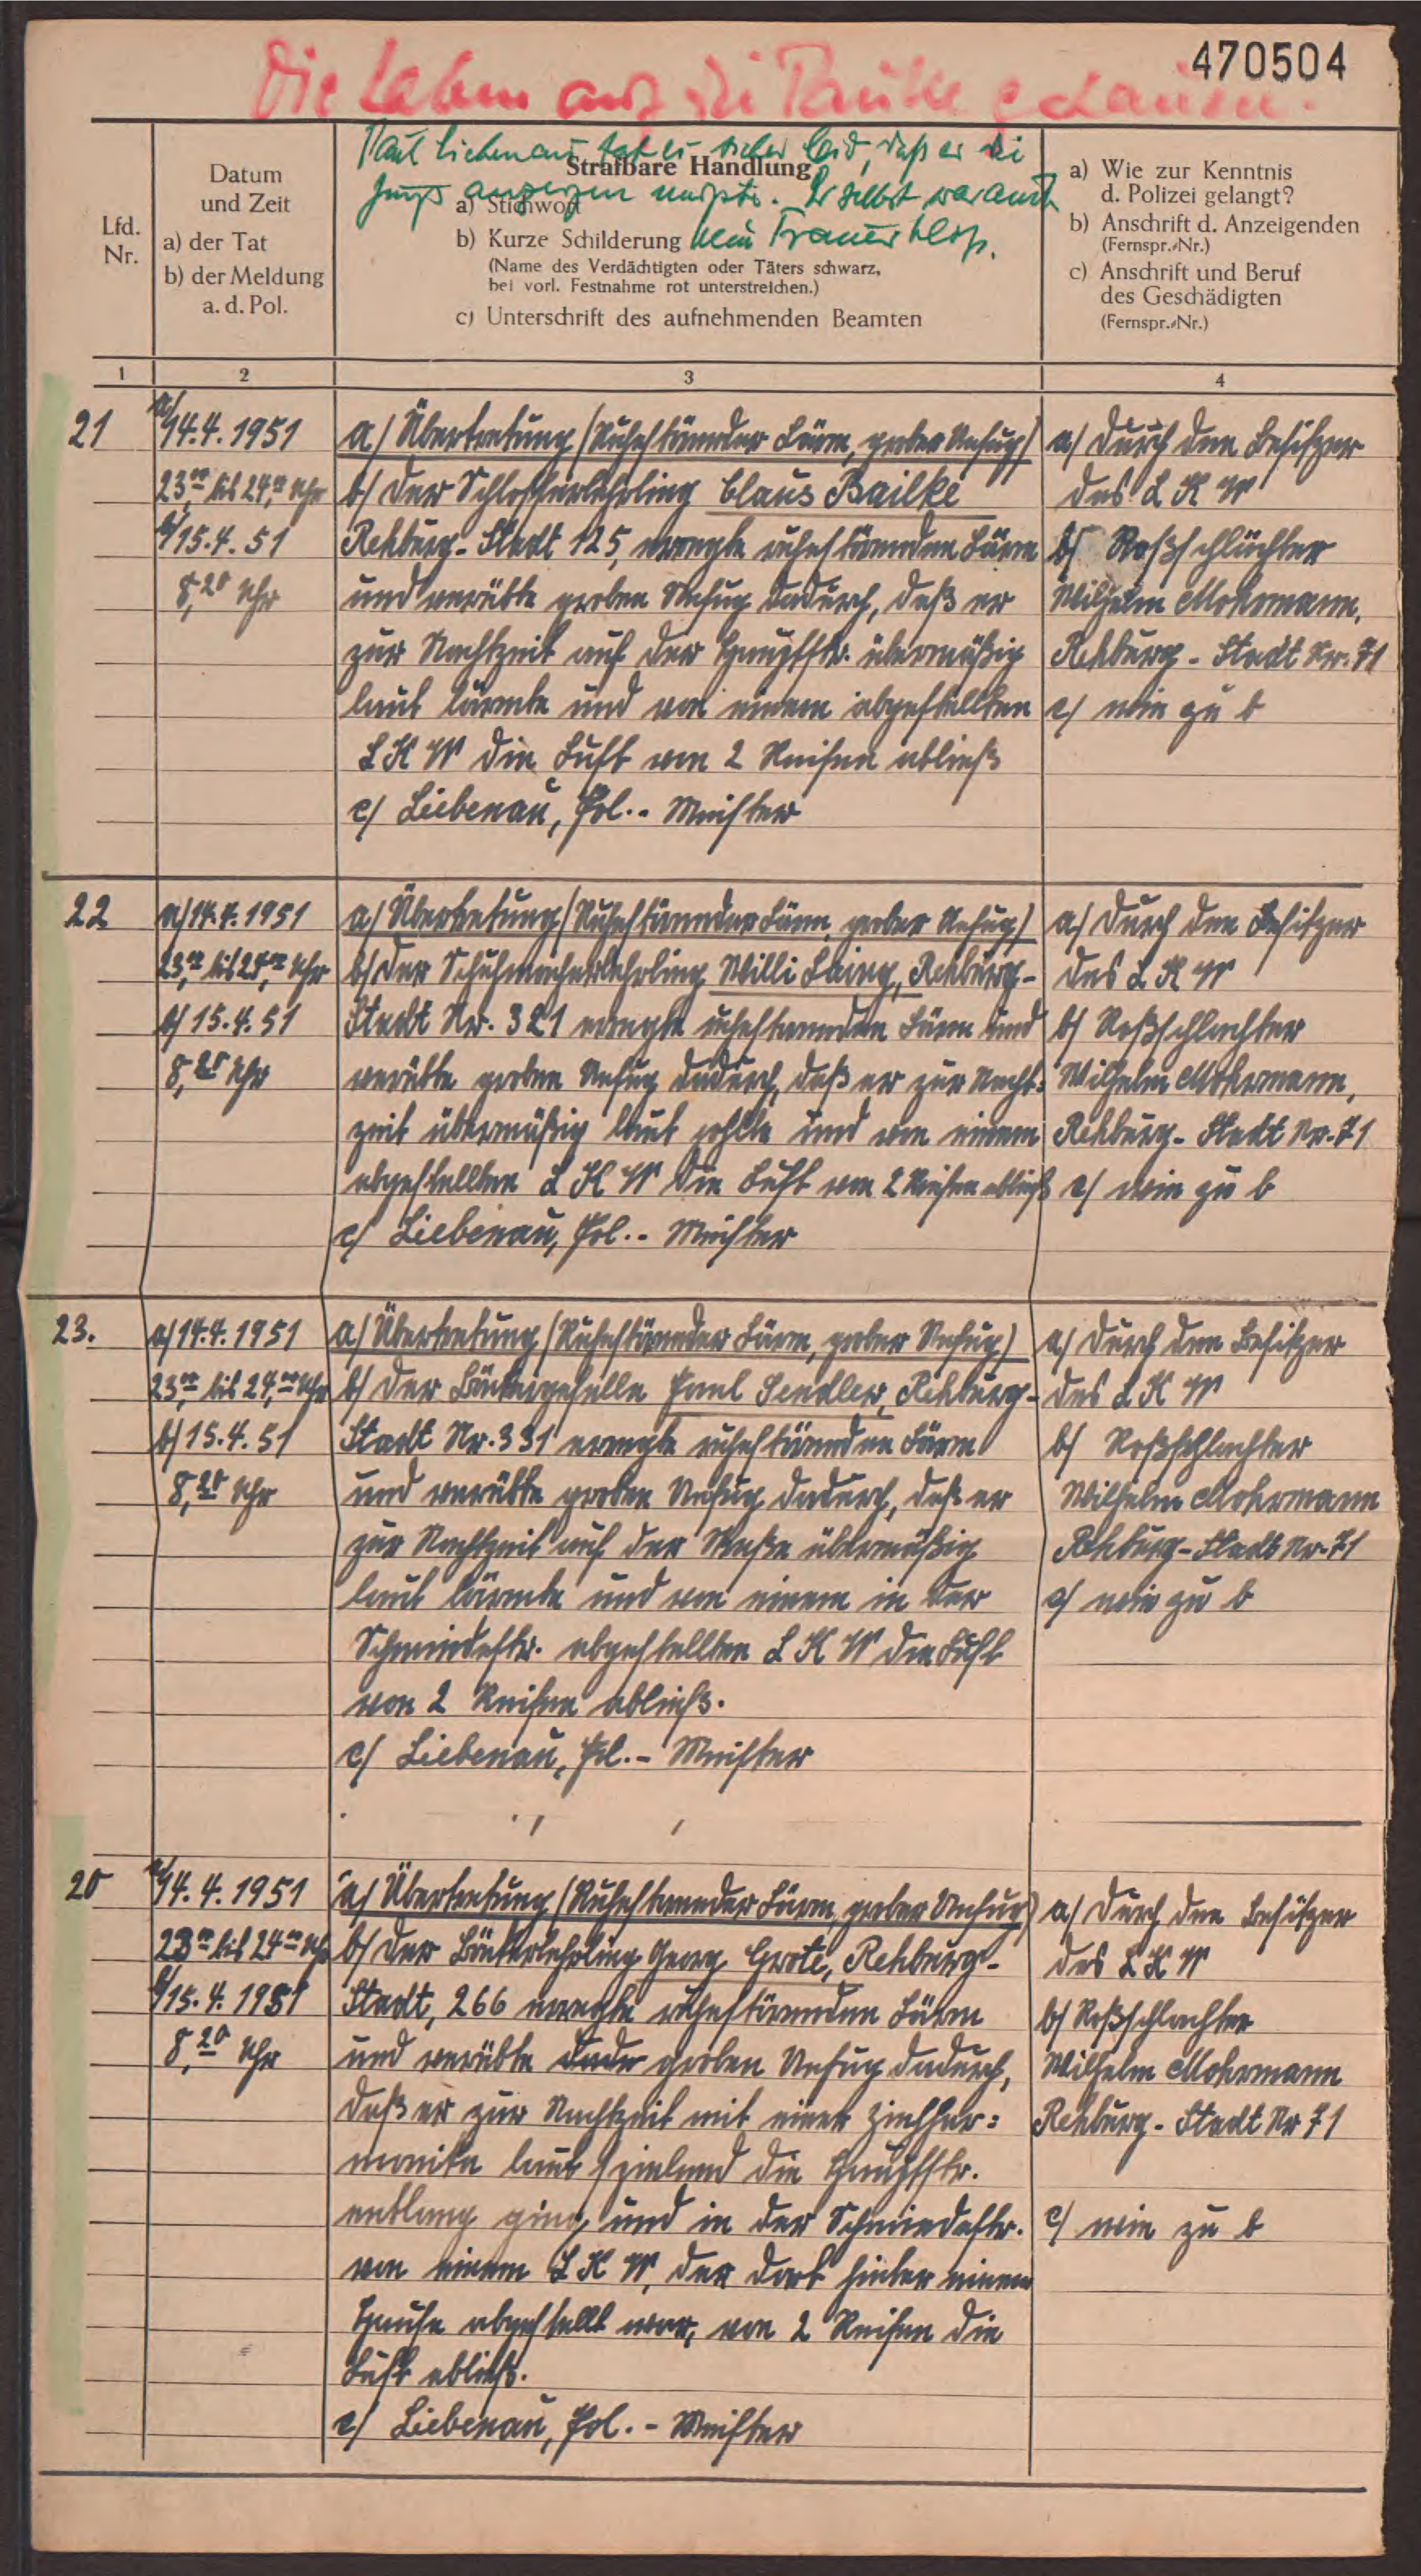 470504
Die haben auf die Pauke gehauen.
Paul Liebenau tat es sicher leid, daß er die
Jungs anzeigen mußte. Er selbst war auch
kein Trauerkloß.
Lfd.
Nr.
Datum
und Zeit
a) der Tat
b) der Meldung
a. d. Pol.
Strafbare Handlung
a) Stichwort
b) Kurze Schilderung
(Name des Verdächtigten oder Täters schwarz,
bei vorl. Festnahme rot unterstreichen.)
c) Unterschrift des aufnehmenden Beamten
a) Wie zur Kenntnis
d. Polizei gelangt?
b) Anschrift d. Anzeigenden
(Fernspr.-Nr.)
c) Anschrift und Beruf
des Geschädigten
(Fernspr.-Nr.)
1 2 3 4
21
a/ 14.4.1951
23,00 bis 24,00 Uhr
b/ 15.4.51
8,20 Uhr
a/ Übertretung (Ruhestörender Lärm, grober Unfug)
b/ Der Schlosserlehrling Claus Bailke
Rehburg-Stadt 125, erregte ruhestörenden Lärm
und verübte groben Unfug dadurch, daß er
zur Nachtzeit auf der Hauptstr. übermäßig
laut lärmte und von einem abgestellten
LKW die Luft von 2 Reifen abließ
c/ Liebenau, Pol.-Meister
a/ Durch den Besitzer
des LKW
b/ Roßschlächter
Wilhelm Mohrmann,
Rehburg-Stadt Nr. 71
c/ wie zu b
22
a/ 14.4.1951
23,00 bis 24,00 Uhr
b/ 15.4.51
8,20 Uhr
a/ Übertretung (Ruhestörender Lärm, grober Unfug)
b/ Der Schuhmacherlehrling Willi Laing, Rehburg-
Stadt Nr. 321 erregte ruhestörenden Lärm und
verübte groben Unfug dadurch, daß er zur Nacht=
zeit übermäßig laut johlte und von einem
abgestellten LKW die Luft von 2 Reifen abließ
c/ Liebenau, Pol.-Meister
a/ Durch den Besitzer
des LKW
b/ Roßschlachter
Wilhelm Mohrmann,
Rehburg-Stadt Nr. 71
c/ wie zu b
23.
a/ 14.4.1951
23,00 bis 24,00 Uhr
b/ 15.4.51
8,20 Uhr
a/ Übertretung (Ruhestörender Lärm, grober Unfug)
b/ Der Bäckergeselle Paul Sendler, Rehburg-
Stadt Nr. 331 erregte ruhestörenden Lärm
und verübte groben Unfug dadurch, daß er
zur Nachtzeit auf der Straße übermäßig
laut lärmte und von einem in der
Schmiedestr. abgestellten LKW die Luft
von 2 Reifen abließ.
c/ Liebenau, Pol.-Meister
a/ Durch den Besitzer
des LKW
b/ Roßschlachter
Wilhelm Mohrmann
Rehburg-Stadt Nr. 71
c/ wie zu b
20
a/ 14.4.1951
23,00 bis 24,00 Uhr
b/ 15.4.1951
8,20 Uhr
a/ Übertretung (Ruhestörender Lärm, grober Unfug)
b/ Der Bäckerlehrling Georg Grote, Rehburg-
Stadt, 266 erregte ruhestörenden Lärm
und verübte groben Unfug dadurch,
daß er zur Nachtzeit mit einer Ziehhar=
monika laut spielend die Hauptstr.
entlang ging, und in der Schmiedestr.
von einem LKW, der dort hinter einem
Hause abgestellt war, von 2 Reifen die
Luft abließ.
c/ Liebenau, Pol.-Meister
a/ Durch den Besitzer
des LKW
b/ Roßschlachter
Wilhelm Mohrmann
Rehburg-Stadt Nr 71
c/ wie zu b